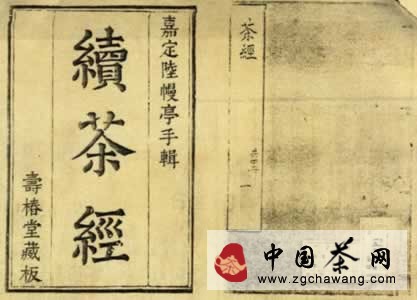 嘉定陸幔亭手輯
續茶經
壽椿堂藏板
茶經
一
中国茶网
www.zgchawang.com